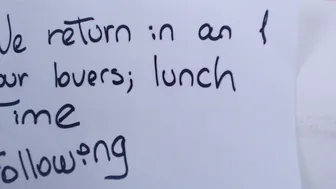 We return in an
our lovers; lunch
Time
Following